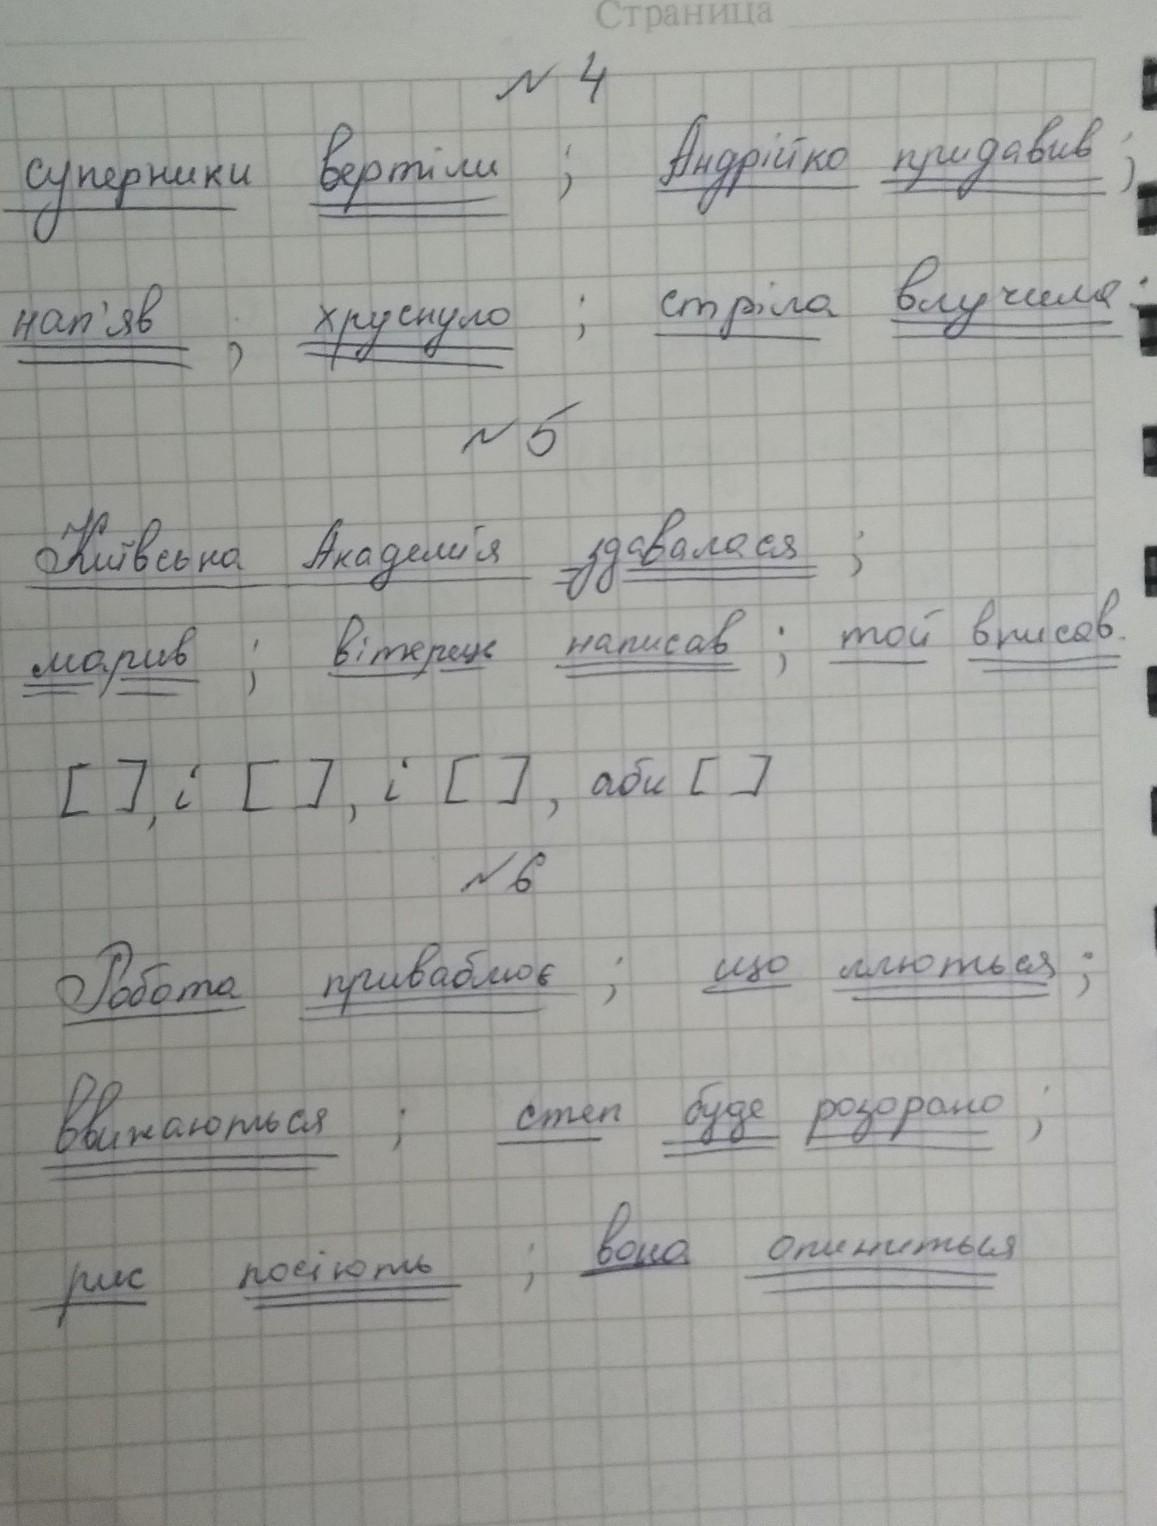 Страница
№ 4
суперники вертіли ; Андрійко придавив ;
нап'яв ; хруснуло ; стріла влучила .
№ 5
Київська Академія здавалася ;
марив ; вітерець написав ; той вписав .
[ ], і [ ], і [ ], аби [ ]
№ 6
Робота приваблює ; що ллються ;
Ввижаються ; степ буде розорано ;
рис посіють ; вона опиниться